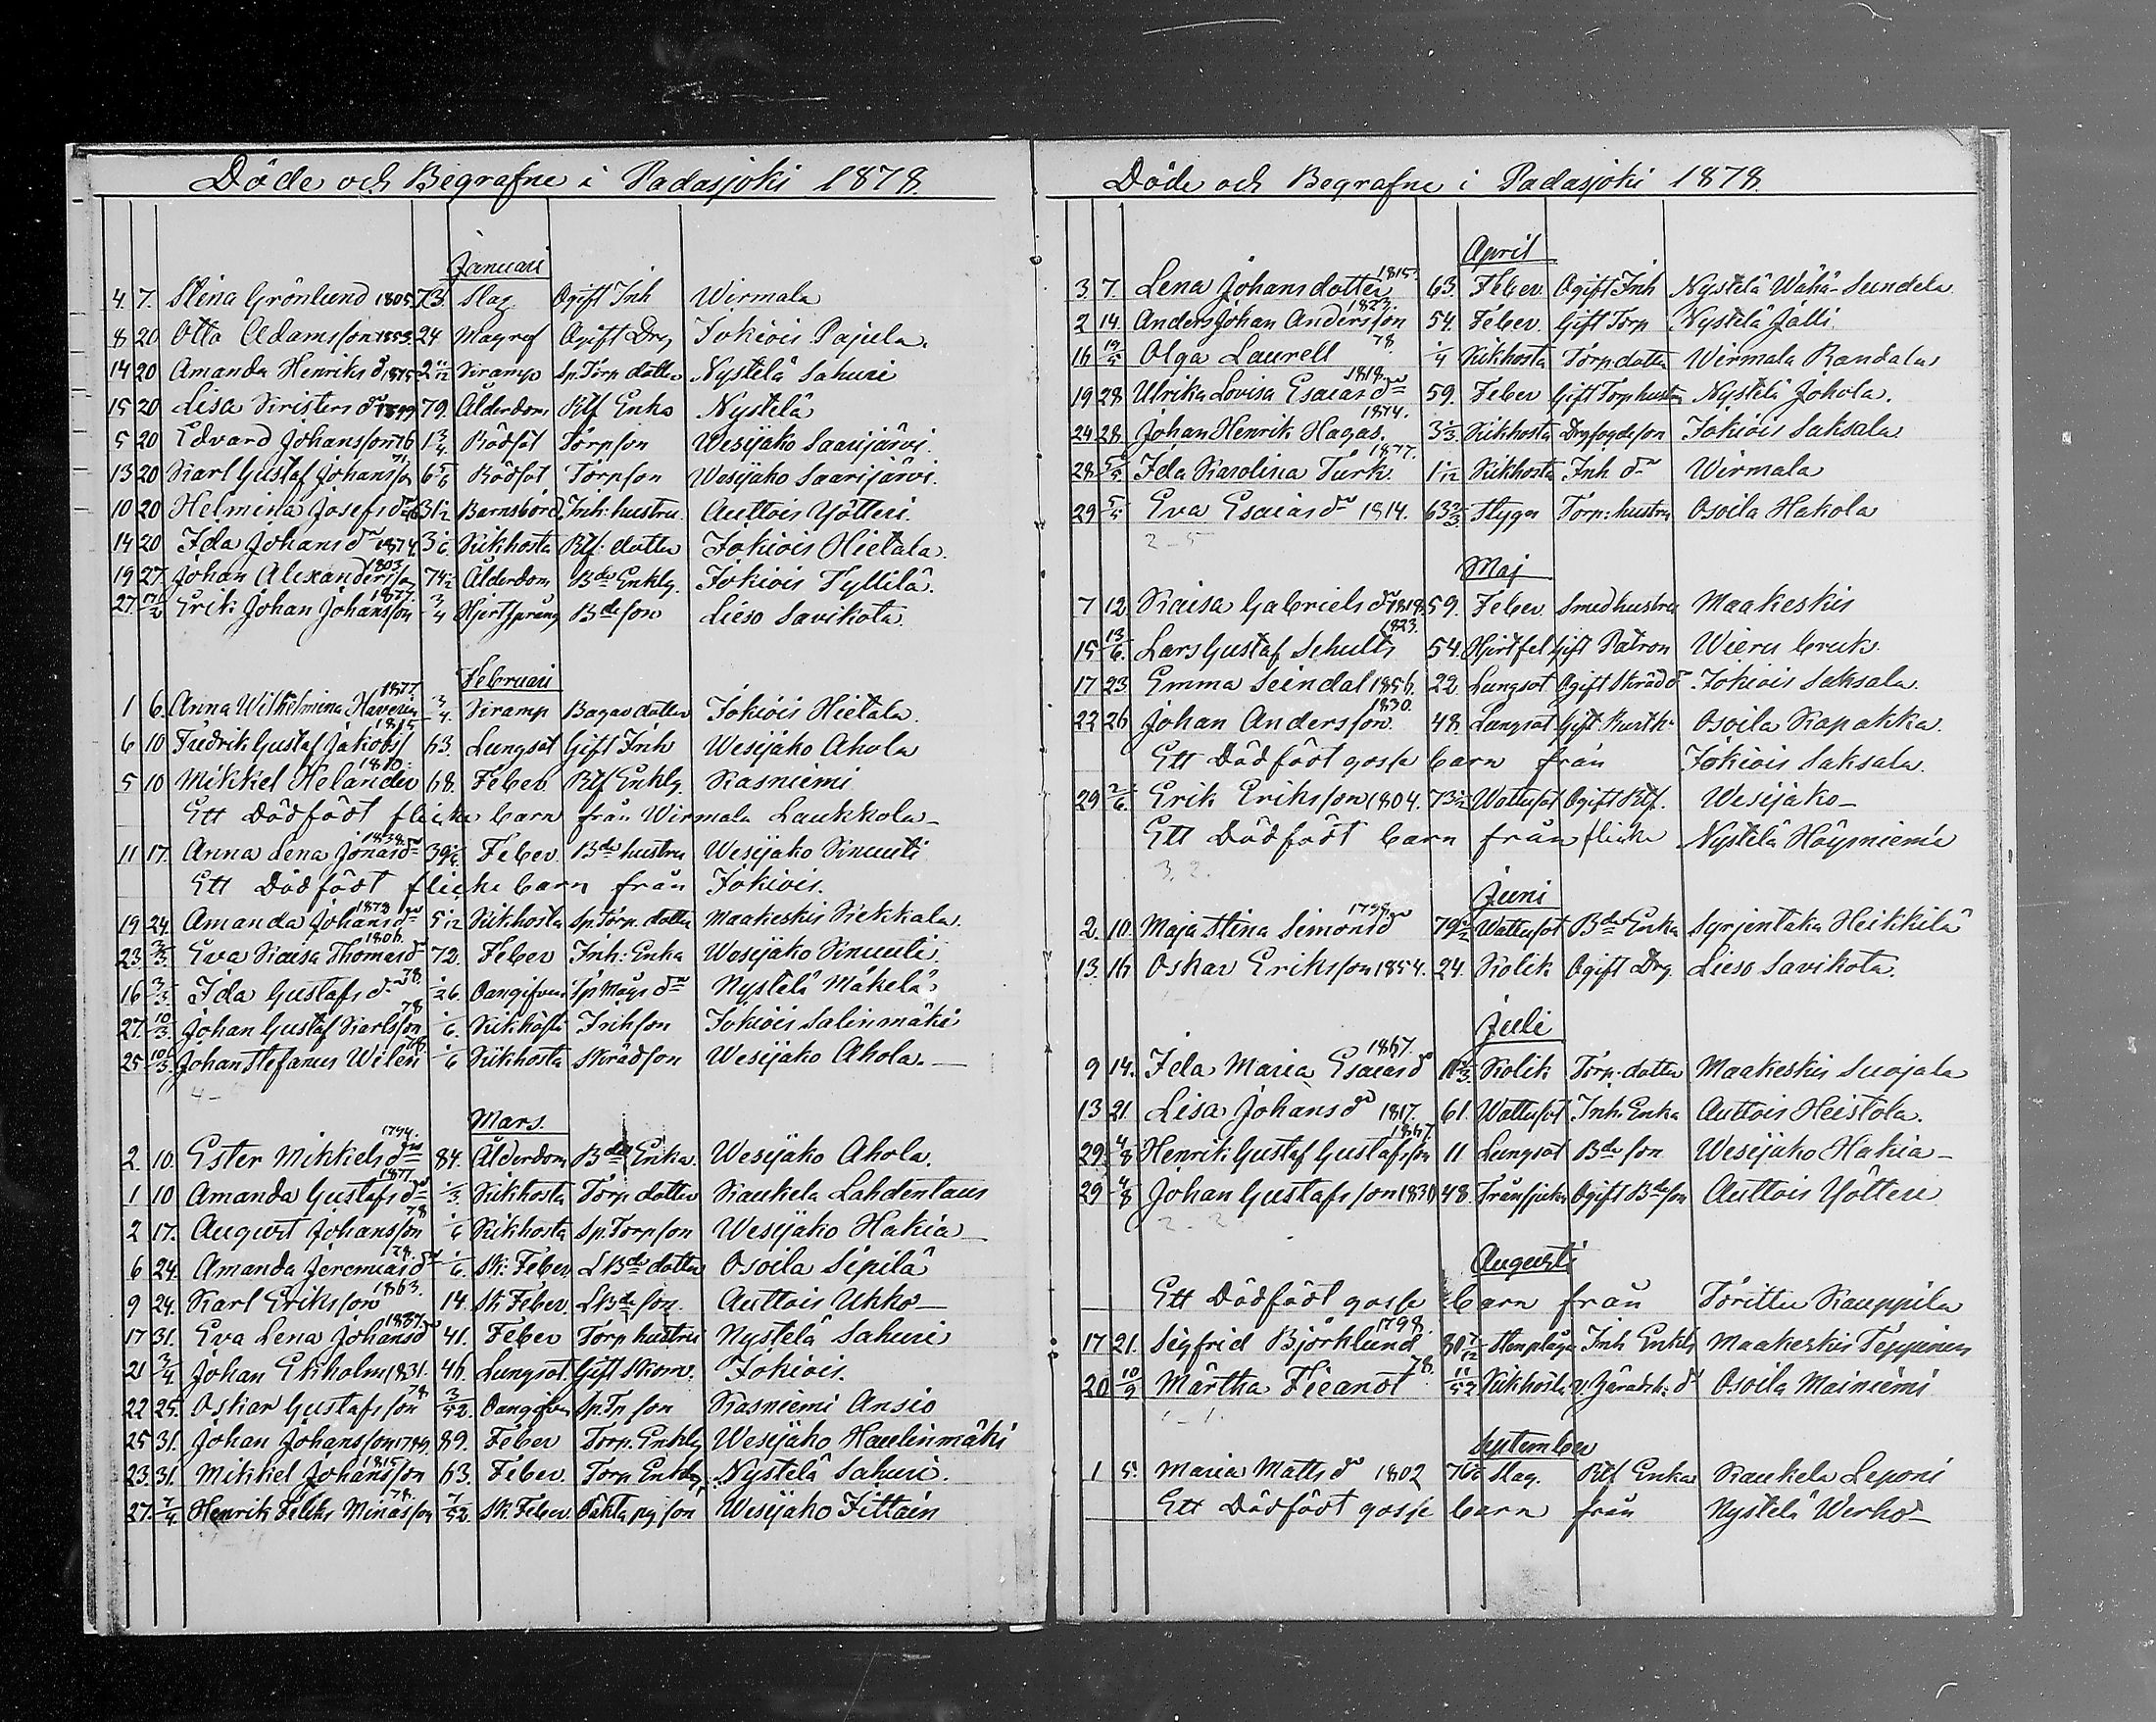 Döde och Begrafne i Padasjoki 1878.
Januari
4. 7. Stina Grönlund 1805. 73. Slag Ogift Inh Wirmala
8 20 Otto Adamsson 1853. 24 Magref Ogift Drg Jokiois Pajula.
14 20 Amanda Henriks dr 1875 2 11/12 Kramp Sp. Torp dotter Nystelä Sahuri
15 20 Lisa Kristers dr 1799 79. Ålderdom Rtf Enka Nystelä
5 20 Edvard Johansson 76 1 3/4 Rödsot Torpson Wesijako Saarijärvi.
13 20 Karl Gustaf Johansson 71 6 5/6 Rödsot Torpson Wesijako Saarijärvi.
10 20 Helmina Josefs dr 31 1/2 Barnsbörd Inh: hustru. Auttois Yötteri.
14 20 Ida Johans dr 1874 3 1/6 Kikhosta Rtf: dotter Jokiois Hietala.
19 27 Johan Alexandersson 1803 74 1/2 Ålderdom Bde Enkly. Jokiois Tyllilä.
27 17/2 Erik Johan Johansson 1877. 3/4 Hjertsprång Bde son Lieso Savikota.
Februari
1 6. Anna Wilhelmina Haveria 1877 3/4. Kramp Bagar dotter Jokiois Hietala.
6 10 Fredrik Gustaf Jakobss 1815 63. Lungsot Gift Inh Wesijako Ahola
5 10 Mikkel Helander 1810. 68. Feber. Rtf Enkly. Kasniemi
Ett Dödfödt flicke barn från Wirmala Laukkola
11 17. Anna Lena Jonas dr 1838. 39 1/4. Feber. Bde hustru Wesijako Knuuti
Ett Dödfödt flicke barn från Jokiois.
19 24. Amanda Johans dr 1872 5 1/12 Kikhosta Sp. Torp. dotter Maakeskis Kekkala.
23. 3/3. Eva Kaisa Thomas dr 1806. 72. Feber Inh: Enka Wesijako Knuuti.
16 3/3. Ida Gustafs dr 78. 1/26. Oangifven Sp Mågs dr Nystelä Mäkelä
27. 10/3. Johan Gustaf Karlsson 78 1/6. Kikhosta Inhson Jokiois Salinmäki
25 10/3. Johan Stefanus Wilen 78. 1/6 Kikhosta Skrädson Wesijako Ahola.
Mars.
2. 10. Ester Mikkels dr 1794. 84. Ålderdom Bde Enka. Wesijako Ahola.
1 10 Amanda Gustafs dr 1877 1/3 Kikhosta Torp dotter Kaukela Lahdentaus
2 17. August Johansson 78 1/6 Kikhosta Sp. Torpson Wesijako Hakia
6 24. Amanda Jeremias dr 78. 1/6. Sk: Feber LBde dotter Osoila Sipilä
9 24. Karl Eriksson 1863. 14. Sk Feber. LBde son. Auttois Ukko
17 31. Eva Lena Johans dr 1837. 41. Feber Torp hustru Nystelä Sahuri
21 3/4. Johan Ekholm 1831. 46. Lungsot. Gift Skom. Jokiois.
22 25. Oskar Gustafsson 78 3/52. Oangifven Sp. Tp son Kasniemi Ansio
25 31. Johan Johansson 1789. 89. Feber Torp. Enkly Wesijako Haulinmäki
23. 31. Mikkel Johansson 1815 63. Feber. Torp Enkly. Nystelä Sahuri.
27. 7/4. Henrik Feliks Minasson 78. 7/52. Sk. Feber. son Wesijako Tittain
Döde och Begrafne i Padasjoki 1878.
April
3. 7. Lena Johans dotter 1815. 63. Feber. Ogift Inh Nystelä Wähä-Seundela
2 14. Anders Johan Andersson 1823. 54. Feber. Gift Torp Nystelä Jälli
16 19/5 Olga Laurell 78. 1/4 Kikhosta Torp. dotter Wirmala Randala
19 28 Ulrika Lovisa Esaias dr 1818. 59. Feber Gift Torp hustru Nystelä Johola.
24 28. Johan Henrik Hagas. 1874. 3 1/3 Kikhosta Drgfogdeson Jokiois Saksala.
28. 5/5. Ida Karolina Turk. 1877. 1 1/12 Kikhosta Inh dr Wirmala
29 5/5 Eva Esaias dr 1814. 63 2/3 Flygn Torp: hustru Osoila Hakola
2 - 5
Maj
7 12 Kaisa Gabriels dr 1818. 59. Feber. Smed hustru Maakeskis
15 13/6. Lars Gustaf Schults 1823. 54. Hjertfel Gift Patron Wieru bruk.
17 23 Emma Seindal 1856. 22 Lungsot Ogift Skräd dr Jokiois Saksala.
22 26 Johan Andersson. 1830. 48. Lungsot Gift Osoila Kapakka.
Ett Dödfödt gosse barn från Jokiois Saksala.
29 2/6. Erik Eriksson 1804. 73 1/2 Wattusot Ogift Rtf. Wesijako
Ett Dödfödt barn från flicke Nystelä Höysniemi
3. 2.
Juni
2. 10. Maja Stina Simons dr 1798 79 1/2 Wattusot Bde Enka Syrjentaka Heikkilä
13. 16 Oskar Eriksson 1854. 24. Kolik Ogift Drg. Lieso Savikota.
Juli
9 14. Ida Maria Esaias dr 1867. Kolik Torp. dotter Maakeskis Suojala
13 21. Lisa Johans dr 1817. 61. Wattusot Inh. Enka Auttois Heistola.
29 4/8 Henrik Gustaf Gustafsson 1867. 11 Lungsot Bde son Wesijako Hakia
29 4/8 Johan Gustafsson 1830 48. Tränsjuka Ogift Bdeson Auttois Yötteri
2 - 2
Augusti
Ett Dödfödt gosse barn från Torittu Kauppila
17 21. Sigfrid Björklund 1798. 80 7/12 Stenplåga Inh Enkly Maakeskis Teppinen
20 10/9 Märtha Fieandt 78. 11/52 Kikhosta Osoila Mainiemi
September
1 5. Maria Matts dr 1802 76 Slag. Rtf Enka Kaukela Leponi
Ett Dödfödt gosse barn från Nystelä Werho